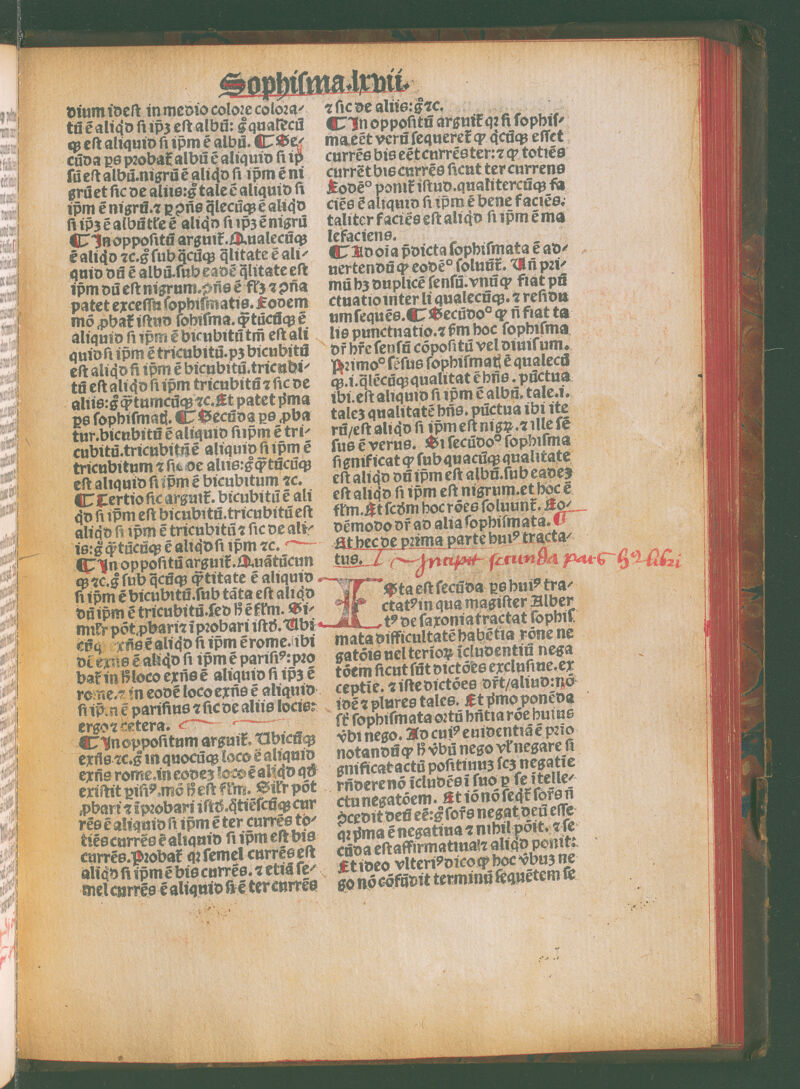 Sophisma.lxvii.
dium ideſt in medio colore colora⸗
tū ē aliqḋ ſi ipꝫ eſt albū: g̊ qualecū
qꝫ eſt aliquid ſi ipm̄ ē albū. ¶ Se⸗
cūda ꝑs ꝓbat̄ albū ē aliquid ſi ip̄
ſū eſt albū.nigrū ē aliqḋ ſi ipm̄ ē ni
grū et ſic de aliis:g̊ tale ē aliquid ſi
ipm̄ ē nigrū.⁊ ꝑ ꝯñs q̄lecūqꝫ ē aliqḋ
ſi ipꝫ ē albū tl̄e ē aliqḋ ſi ipꝫ ē nigrū
¶ In oppoſitū arguit̄. Qualecūqꝫ
ē aliqḋ ⁊c.g̊ ſub q̄cūqꝫ q̄litate ē ali⸗
quid dū ē albū.ſub eadē q̄litate eſt
ipm̄ dū eſt nigrum.ꝯñs ē fl̄ꝫ ⁊ ꝯña
patet exceſſu ſophiſmatis. Eodem
mō ꝓbat̄ iſtud ſohiſma.q̄tūcūqꝫ ē
aliquid ſi ipm̄ ē bicubitū tm̄ eſt ali
quid ſi ipm̄ ē tricubitū.pꝫ bicubitū
eſt aliqḋ ſi ipm̄ ē bicubitū.tricubi⸗
tū eſt aliqḋ ſi ipm̄ tricubitū ⁊ ſic de
aliis:g̊ q̄tumcūqꝫ ⁊c.Et patet pͥma
ꝑs ſophiſmatꝭ. ¶ Secūda ꝑs ꝓba
tur.bicubitū ē aliquid ſi ipm̄ ē tri⸗
cubitū.tricubitū ē aliquid ſi ipm̄ ē
tricubitum ⁊ ſic de aliis:g̊ q̄tūcūqꝫ
eſt aliquid ſi ipm̄ ē bicubitum ⁊c.
¶ Tertio ſic arguit̄. bicubitū ē ali
qḋ ſi ipm̄ eſt bicubitū.tricubitū eſt
aliqḋ ſi ipm̄ ē tricubitū ⁊ ſic de ali⸗
is:g̊ q̄tūcūqꝫ ē aliqḋ ſi ipm̄ ⁊c.
¶ In oppoſitū arguit̄. Quātūcun
qꝫ ⁊c.g̊ ſub q̄cūqꝫ q̄titate ē aliquid
ſi ipm̄ ē bicubitū.ſub tāta eſt aliqḋ
dū ipm̄ ē tricubitū.ſed ħ ē fl̄m. Si⸗
mil̄r pōt ꝓbari ⁊ iprobari iſtḋ. Ubi
cūqꝫ exñs ē aliqḋ ſi ipm̄ ē rome.ibi
exñs ē aliqḋ ſi ipm̄ ē pariſiꝰ:pro
bat̄ in ħ loco exñs ē aliquid ſi ipꝫ ē
rome.⁊ in eodē loco exñs ē aliquid
ſi ipm̄ ē pariſius ⁊ ſic de aliis locis:
ergo ⁊ cetera.
¶ In oppoſitum arguit̄. Ubicūqꝫ
exñs ⁊c.g̊ in quocūqꝫ loco ē aliquid
exñs rome.in eodeꝫ loco ē aliqḋ qḋ
exiſtit piſiꝰ.mō ħ eſt fl̄m. Sil̄r pōt
ꝓbari ⁊ iprobari iſtḋ.q̄tiēſcūqꝫ cur
rēs ē aliquid ſi ipm̄ ē ter currēs to⸗
tiēs currēs ē aliquid ſi ipm̄ eſt bis
currēs. Probat̄ qꝛ ſemel currēs eſt
aliqḋ ſi ipm̄ ē bis currēs. ⁊ etiā ſe⸗
mel currēs ē aliquid ſi ē ter currēs
⁊ ſic de aliis:g̊ ⁊c.
¶ In oppoſitū arguit̄ qꝛ ſi ſophiſ⸗
ma eēt verū ſequeret̄ ꝙ q̄cūqꝫ eſſet
currēs bis eēt currēs ter:⁊ ꝙ totiēs
currēt bis currēs ſicut ter currens
Eodē° ponit̄ iſtud.qualitercūqꝫ fa
ciēs ē aliquid ſi ipm̄ ē bene faciēs:
taliter faciēs eſt aliqḋ ſi ipm̄ ē ma
lefaciens.
¶ Ad oīa p̄dicta ſophiſmata ē ad⸗
uertendū ꝙ eodē° ſoluūt̄. Un̄ pri⸗
mū hꝫ duplicē ſenſū.vnū ꝙ fiat pū
ctuatio inter li qualecūqꝫ.⁊ reſidu
um ſequēs. ¶ Secūdo° ꝙ ñ fiat ta
lis punctuatio.⁊ ſm̄ hoc ſophiſma
dr̄ hr̄e ſenſū cōpoſitū vel diuiſum.
Primo° ſēſus ſophiſmatꝭ ē qualecū
qꝫ.i.q̄lēcūqꝫ qualitatē hñs.pūctua
ibi.eſt aliquid ſi ipm̄ ē albū. tale.i.
taleꝫ qualitatē hñs. pūctua ibi ite
rū/eſt aliqḋ ſi ipm̄ eſt nigꝝ.⁊ ille ſē
ſus ē verus. Si ſecūdo° ſophiſma
ſignificat ꝙ ſub quacūqꝫ qualitate
eſt aliqḋ dū ipm̄ eſt albū.ſub eadeꝫ
eſt aliqḋ ſi ipm̄ eſt nigrum.et hoc ē
fl̄m. Et ſcḋm hoc rōes ſoluunt̄. Eo⸗
dēmodo dr̄ ad alia ſophiſmata. ¶
Et hec de prima parte huiꝰ tracta⸗
tus.
Incipit ſecunda pars hꝰ libri
Iſta eſt ſecūda ꝑs huiꝰ tra⸗
ctatꝰ in qua magiſter Alber
tꝰ de ſaxonia tractat ſophiſ
mata difficultatē habētia rōne ne
gatōis uel terioꝝ īcludentiū nega
tōem ſicut ſūt dictōes excluſiue.ex
ceptīe. ⁊ iſte dictōes dr̄t/aliud:nō
idē ⁊ plures tales. Et pͥmo ponēda
ſt̄ ſophiſmata ortū hñtia rōe huius
v̄bi nego. Ad cuiꝰ euidentiā ē prīo
notandū ꝙ ħ v̄bū nego vl̄ negare ſi
gnificat actū poſitiuuꝫ ſcꝫ negatīe
rñdere nō īcludēs ī ſuo ꝑ ſe ītelle⸗
ctu negatōem. Et iō nō ſeqt̄ ſor̄s ñ
ꝯcedit deū eē:g̊ ſor̄s negat deū eſſe
qꝛ pͥma ē negatiua ⁊ nihil pōit. ⁊ ſe
cūda eſt affirmatiua/⁊ aliqḋ ponit:
Et ideo vlteriꝰ dico ꝙ hoc v̄buꝫ ne
go nō cōfūdit terminū ſequētem ſe